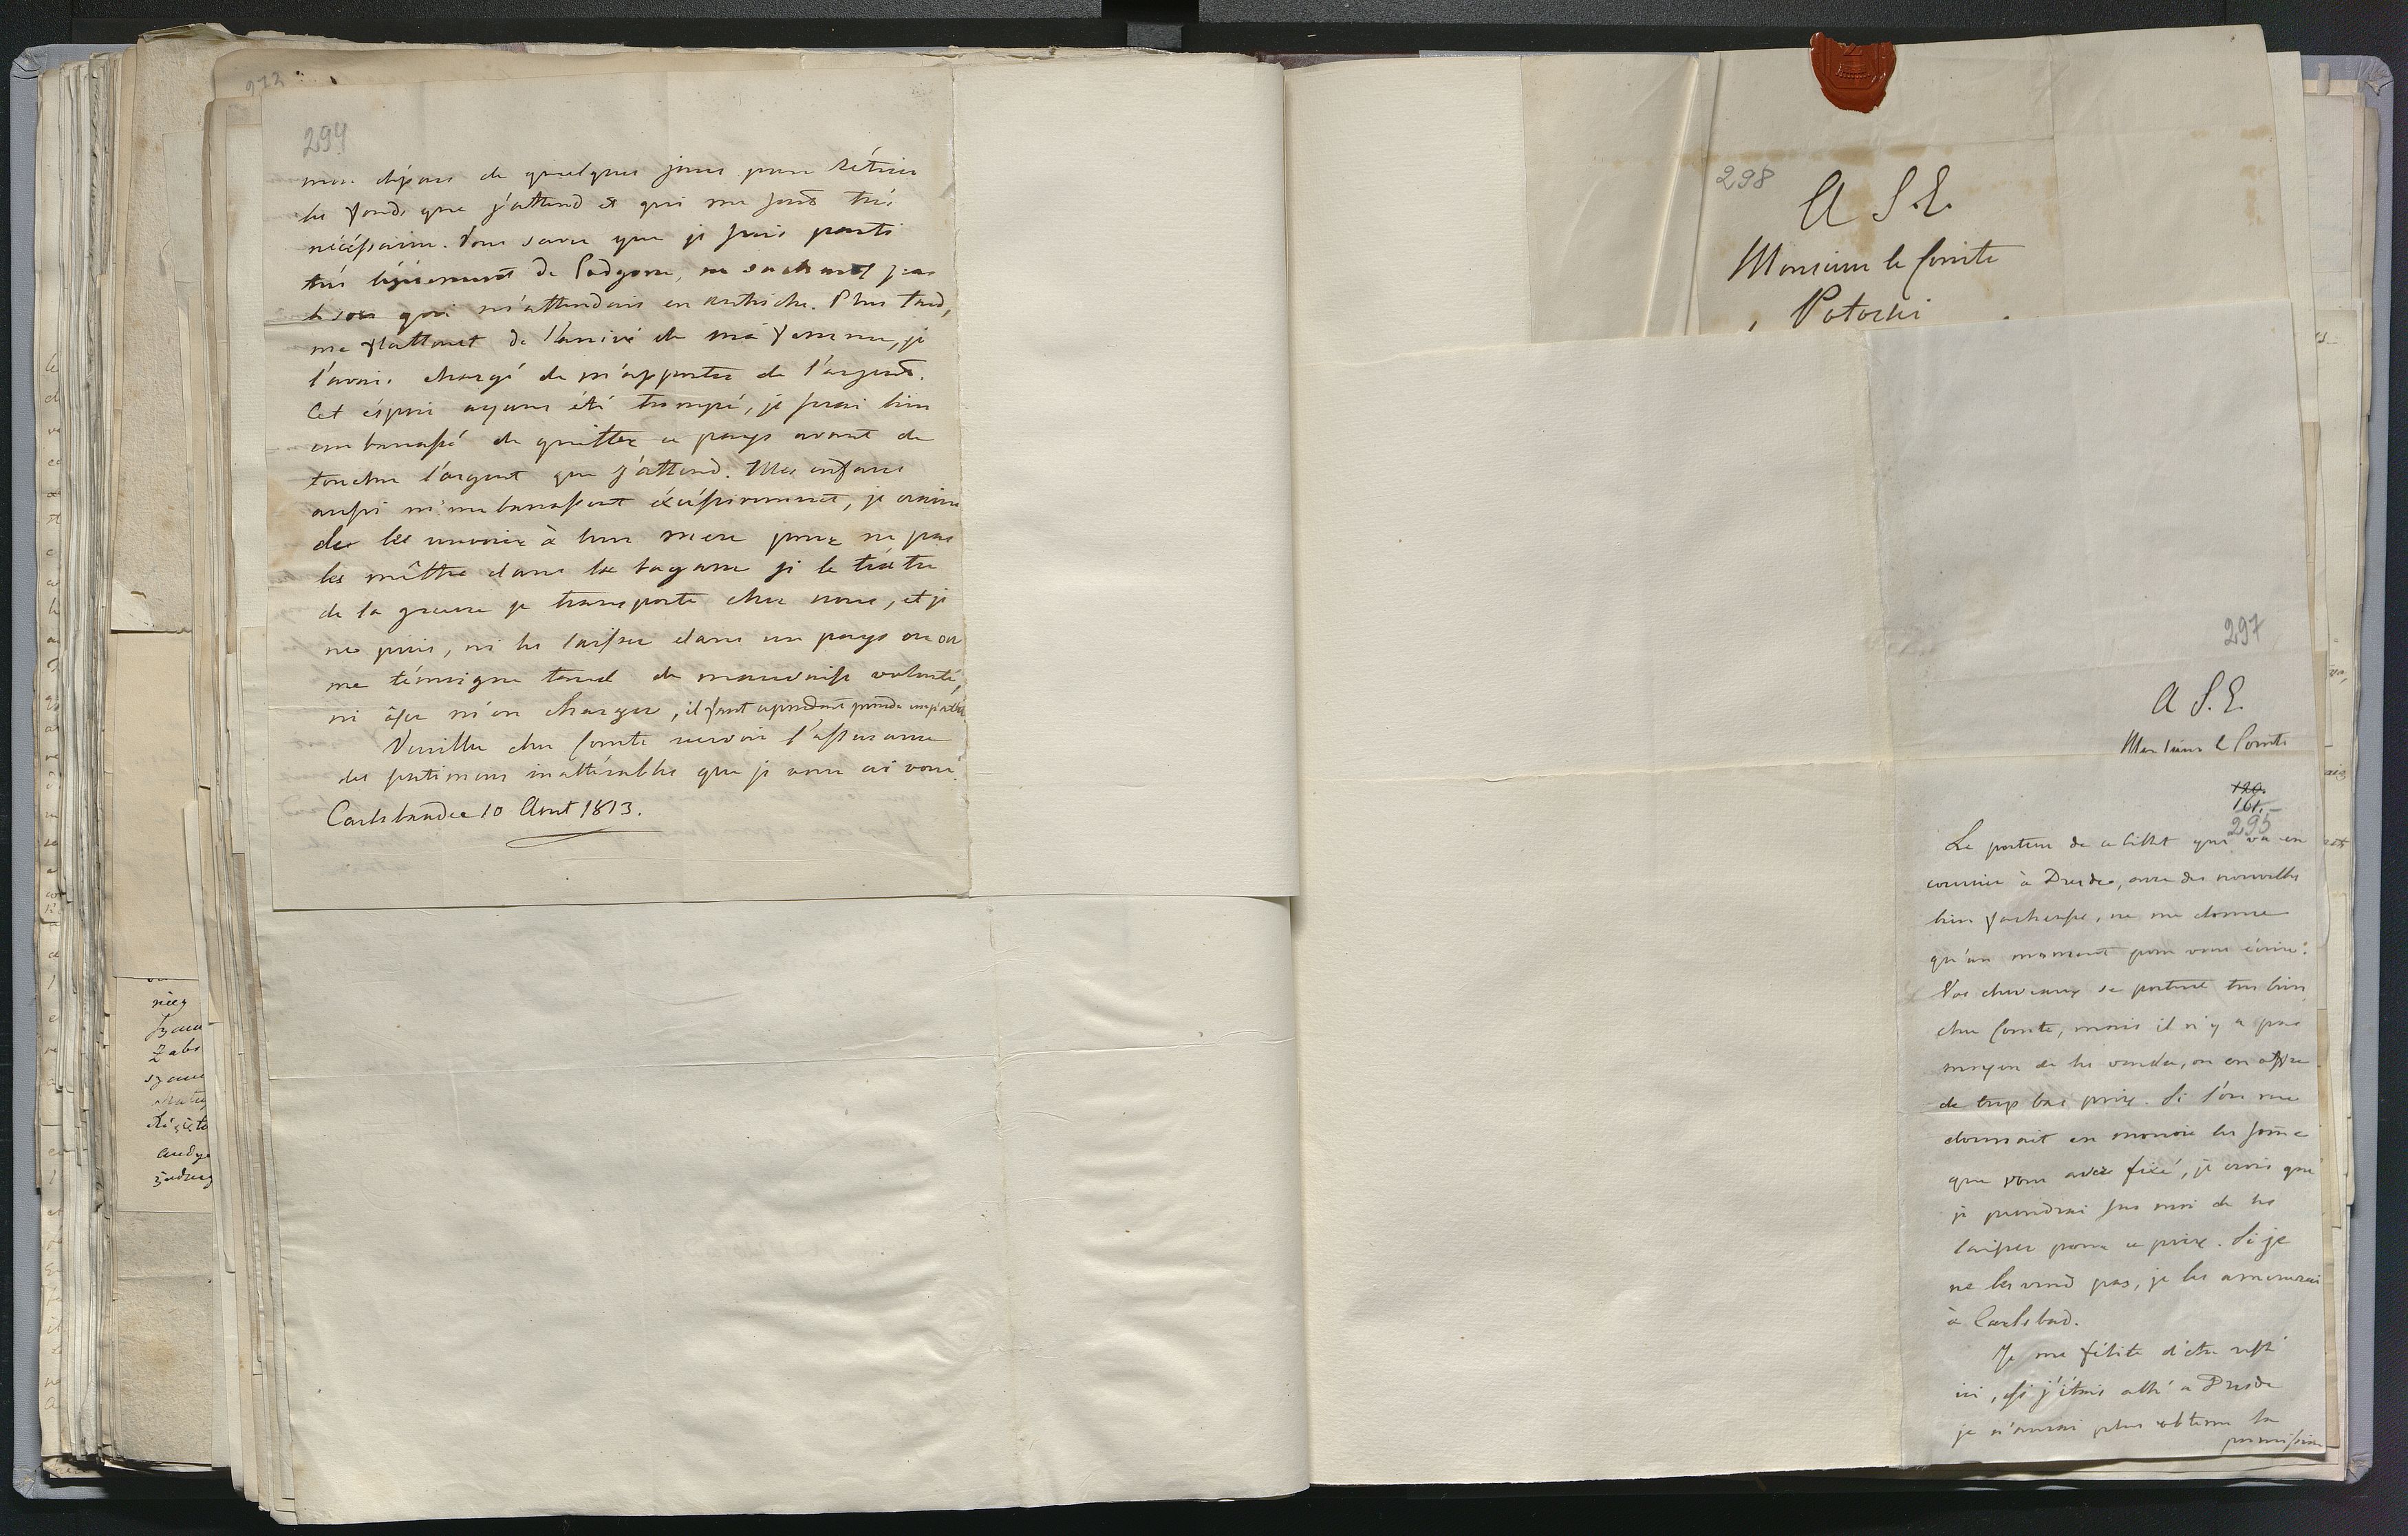 294
mon départ de quelques jours pour rétirer
les fonds que j'attend et qui me sont très
nécéssaires. Vous savez que je suis parti
très légérement de Podgorze, ne sachant pas
le sort qui m'attendois en Autriche. Plus tard,
me flattant de l'arrivé de ma femme, je
l'avois chargé de m'apporter de l'argent.
Cet éspoir ayant été trompé, je serai bien
embarassé de quitter ce pays avant de
toucher l'argent que j'attend. Mes enfans
aussi m'embarassent éxcéssivement, je crains
de les envoier à leur mere pour ne pas
les mêttre dans la bagarre si le téatre
de la guerre se transporte chez nous, et je
ne puis, ni les laisser dans un pays ou on
me témoigne tant de mauvaise volonté,
ni ôser m'en charger, il faut cependant prendre un parti
Veuillez cher Comte recevoir l'assurance
des sentimens inaltérables que je vous ai voué.
Carlsbad ce 10 Aout 1813.
298
A S.E.
Monsieur le Comte
Potocki
297
A S.E.
Monsieur le Comte
120.
161.
295
Le porteur de ce billet qui va en
courier à Dresde, avec des nouvelles
bien facheuse, ne me donne
qu'un moment pour vous écrire.
Vos chevaux se portent très bien
cher Comte, mais il n'y a pas
moyen de les vendre, on en offre
de trop bas prix. Si l'on me
donnait en monoie la somme
que vous avez fixé, je crois que
je prendrai sur moi de les
laisser pour ce prix. Si je
ne les vend pas, je les amenerai
à Carlsbad.
Je me félicite d'etre resté
ici, si j'étois allé a Dresde
je n'aurai plus obtenu la
permission